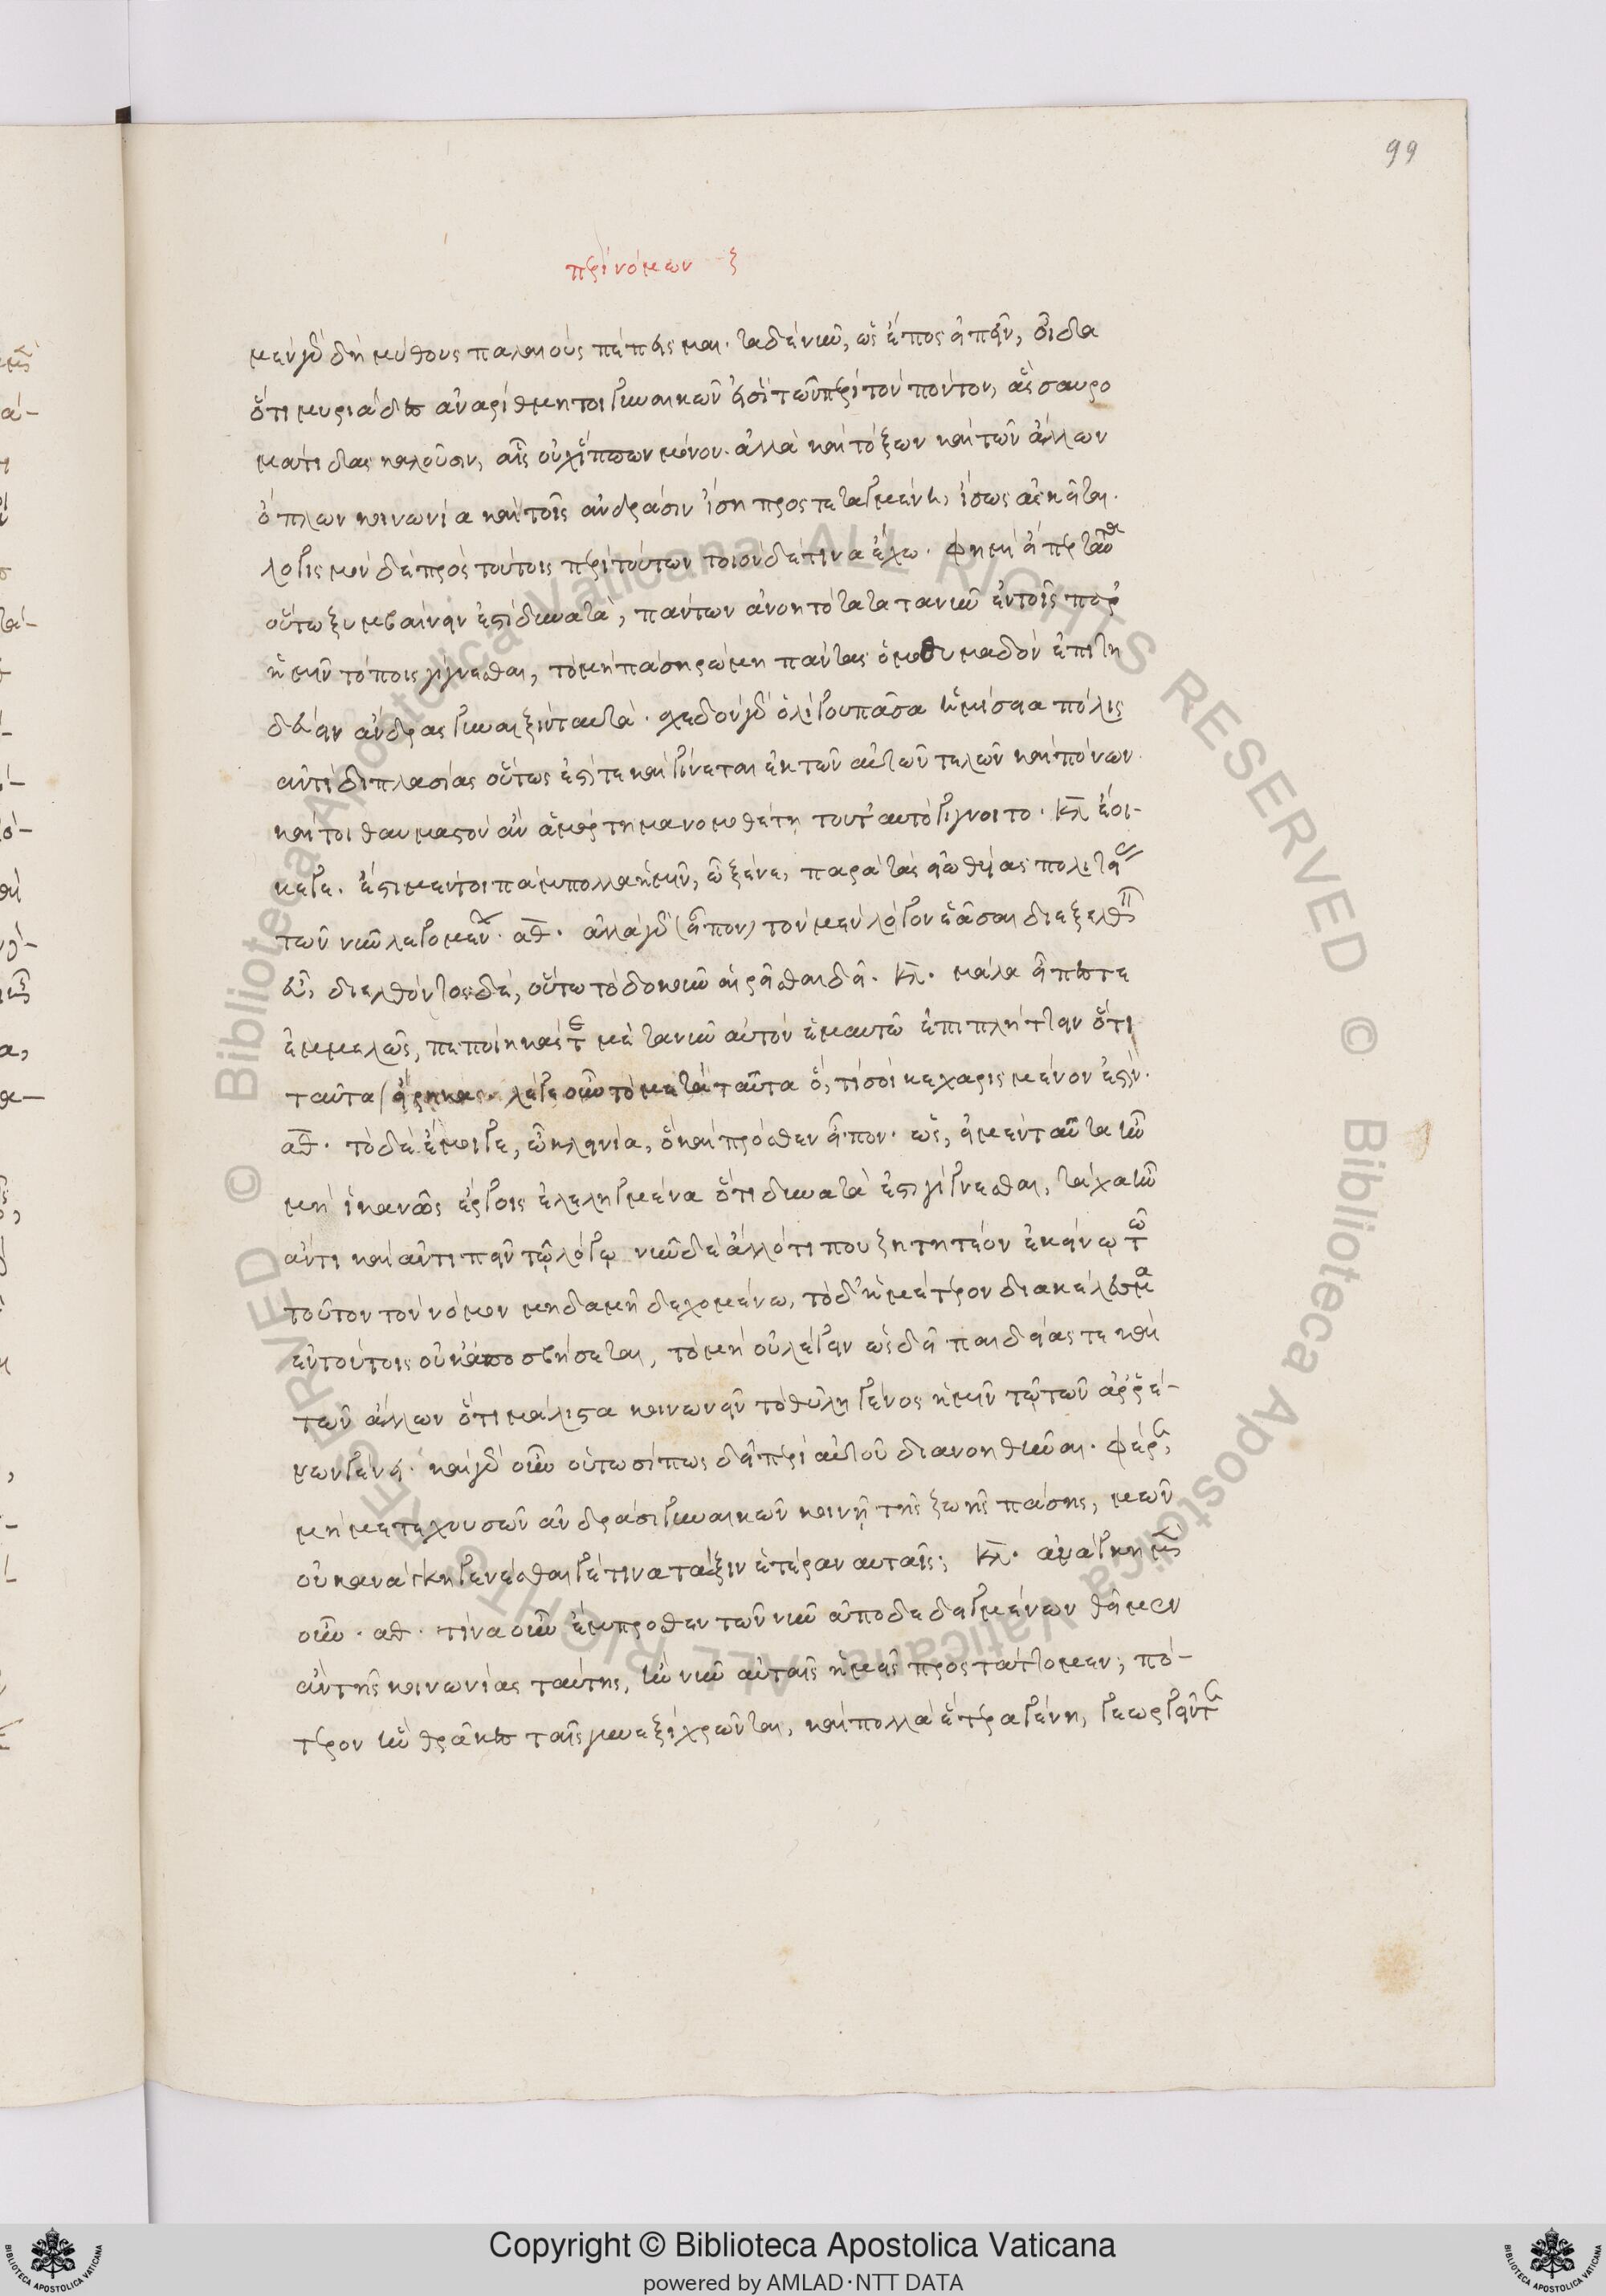 99
περὶ νόμων ζ
μὲν γὰρ δὴ μύθους παλαιοὺς πέπεισμαι. τὰ δὲ νῦν, ὡς ἔπος εἰπεῖν, οἶδα
ὅτι μυριάδες ἀναρίθμητοι γυναικῶν εἰσὶ τῶν περὶ τὸν πόντον, ἃς σαυρο
μάτιδας καλοῦσιν, αἷς οὐχ ἵππων μόνον. ἀλλὰ καὶ τόξων καὶ τῶν ἄλλων
ὅπλων κοινωνία καὶ τοῖς ἀνδράσιν ἴση προστεταγμένη, ἴσως ἀσκεῖται.
λογισμὸν δὲ πρὸς τούτοις περὶ τούτων τοιόνδε τινα ἔχω. φημὶ εἴπερ ταῦθ
οὕτω ξυμβαίνειν ἐστὶ δυνατὰ, πάντων ἀνοητότατα τανῦν ἐν τοῖς παρ
ἡμῖν τόποις γίγνεσθαι, τὸ μὴ πάσῃ ῥώμῃ πάντας ὁμοθυμαδὸν ἐπιτη
δεύειν ἄνδρας γυναιξὶν ταυτά. σχεδὸν γὰρ ὀλίγου πᾶσα ἡμίσεια πόλις
ἀντὶ διπλασίας οὕτως ἐστί τε καὶ γίνεται ἐκ τῶν αὐτῶν τελῶν καὶ πόνων.
καίτοι θαυμαστὸν ἂν ἁμάρτημα νομοθέτῃ τοῦτ' αὐτὸ γίγνοιτο. κλ ἔοι-
κέ γε. ἔστι μέντοι πάμπολλα ἡμῖν, ὦ ξένε, παρὰ τὰς εἰωθυίας πολιτείας
τῶν νῦν λεγομένων. ἀθ. ἀλλὰ γὰρ (εἶπον) τὸν μὲν λόγον ἐᾶσαι διεξελθεῖν
εὖ, διελθόντος δὲ, οὕτω τὸ δοκοῦν αἱρεῖσθαι δεῖ. κλ. μάλα εἶπές τε
ἐμμελῶς, πεποίηκάς τ' ἐμὲ τανῦν αὐτὸν ἐμαυτῷ ἐπιπλήττειν ὅτι
ταῦτα εἴρηκας. λέγε οὖν τὸ μετὰ ταῦτα ὅ, τι σοὶ κεχαρισμένον ἐστίν.
ἀθ. τόδε ἔμοιγε, ὦ κλεινία, ὃ καὶ πρόσθεν εἶπον. ὡς, εἰ μὲν ταῦτα ἦν
μὴ ἱκανῶς ἔργοις ἐληλεγμένα ὅτι δυνατά ἐστι γίγνεσθαι, τάχα ἦν
ἄν τι καὶ ἀντιπεῖν τῷ λόγῳ νῦν δὲ ἄλλό τι που ζητητέον ἐκείνῳ τῷ
τοῦτον τὸν νόμον μηδαμῇ δεχομένῳ, τὸ δ' ἡμέτερον διακέλευσμα
ἐν τούτοις οὐκ ἀποσβήσεται, τὸ μὴ οὐ λέγειν ὡς δεῖ παιδείας τε καὶ
τῶν ἄλλων ὅτι μάλιστα κοινωνεῖν τὸ θῆλυ γένος ἡμῖν τῷ τῶν ἀῤῥέ-
νων γένει. καὶ γὰρ οὖν οὑτωσί πως δεῖ περὶ αὐτοῦ διανοηθῆναι. φέρε,
μὴ μετεχουσῶν ἀνδράσι γυναικῶν κοινῇ τῆς ζωῆς πάσης, μῶν
οὐκ ἀνάγκη γενέσθαι γέ τινα τάξιν ἑτέραν αὐταῖς; κλ. ἀνάγκη μὲν
οὖν. ἀθ. τίνα οὖν ἔμπροσθεν τῶν νῦν ἀποδεδειγμένων θεῖμεν
ἂν τῆς κοινωνίας ταύτης, ἣν νῦν αὐταῖς ἡμεῖς προστάττομεν; πό-
τερον ἣν θρᾷκες ταῖς γυναιξὶ χρῶνται, καὶ πολλὰ ἕτερα γένη, γεωργεῖν τε
Copyright © Biblioteca Apostolica Vaticana
powered by AMLAD·NTT DATA